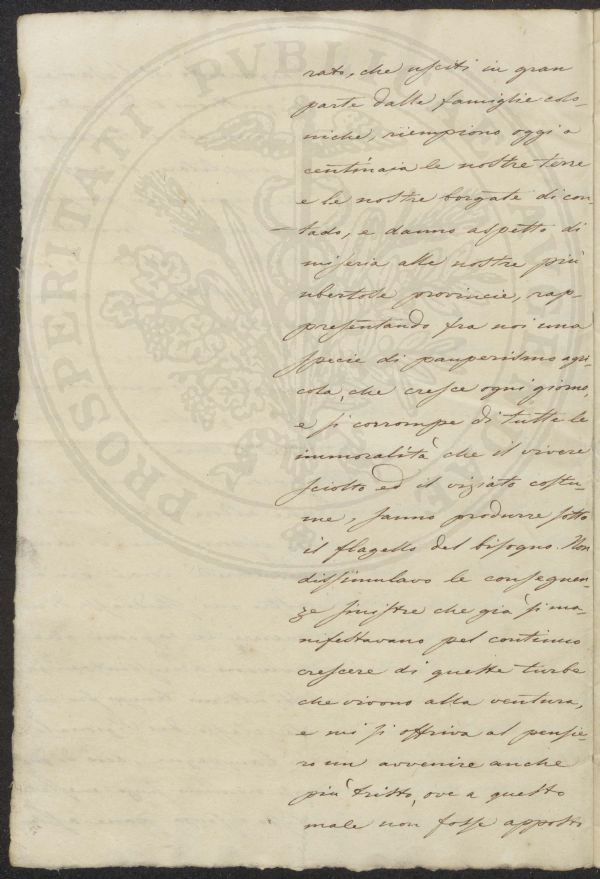 rato, che usciti in gran
parte dalle famiglie colo-
niche, riempiono oggi a
centinaia le nostre terre
e le nostre borgate di con-
tado, e danno aspetto di
miseria alle nostre più
ubertose provincie, rap-
presentando fra noi una
specie di pauperismo agri-
cola, che cresce ogni giorno,
e si corrompe di tutte le
immoralità che il vivere
sciolto ed il viziato costu-
me, sanno produrre sotto
il flagello del bisogno. Non
dissimulavo le conseguen-
ze sinistre che già si ma-
nifestavano pel continuo
crescere di queste turbe
che vivono alla ventura,
e mi si offriva al pensie-
ro un avvenire anche
più tristo, ove a questo
male non fosse apposto
PROSPERITATI PUBLICAE AUGENDAE